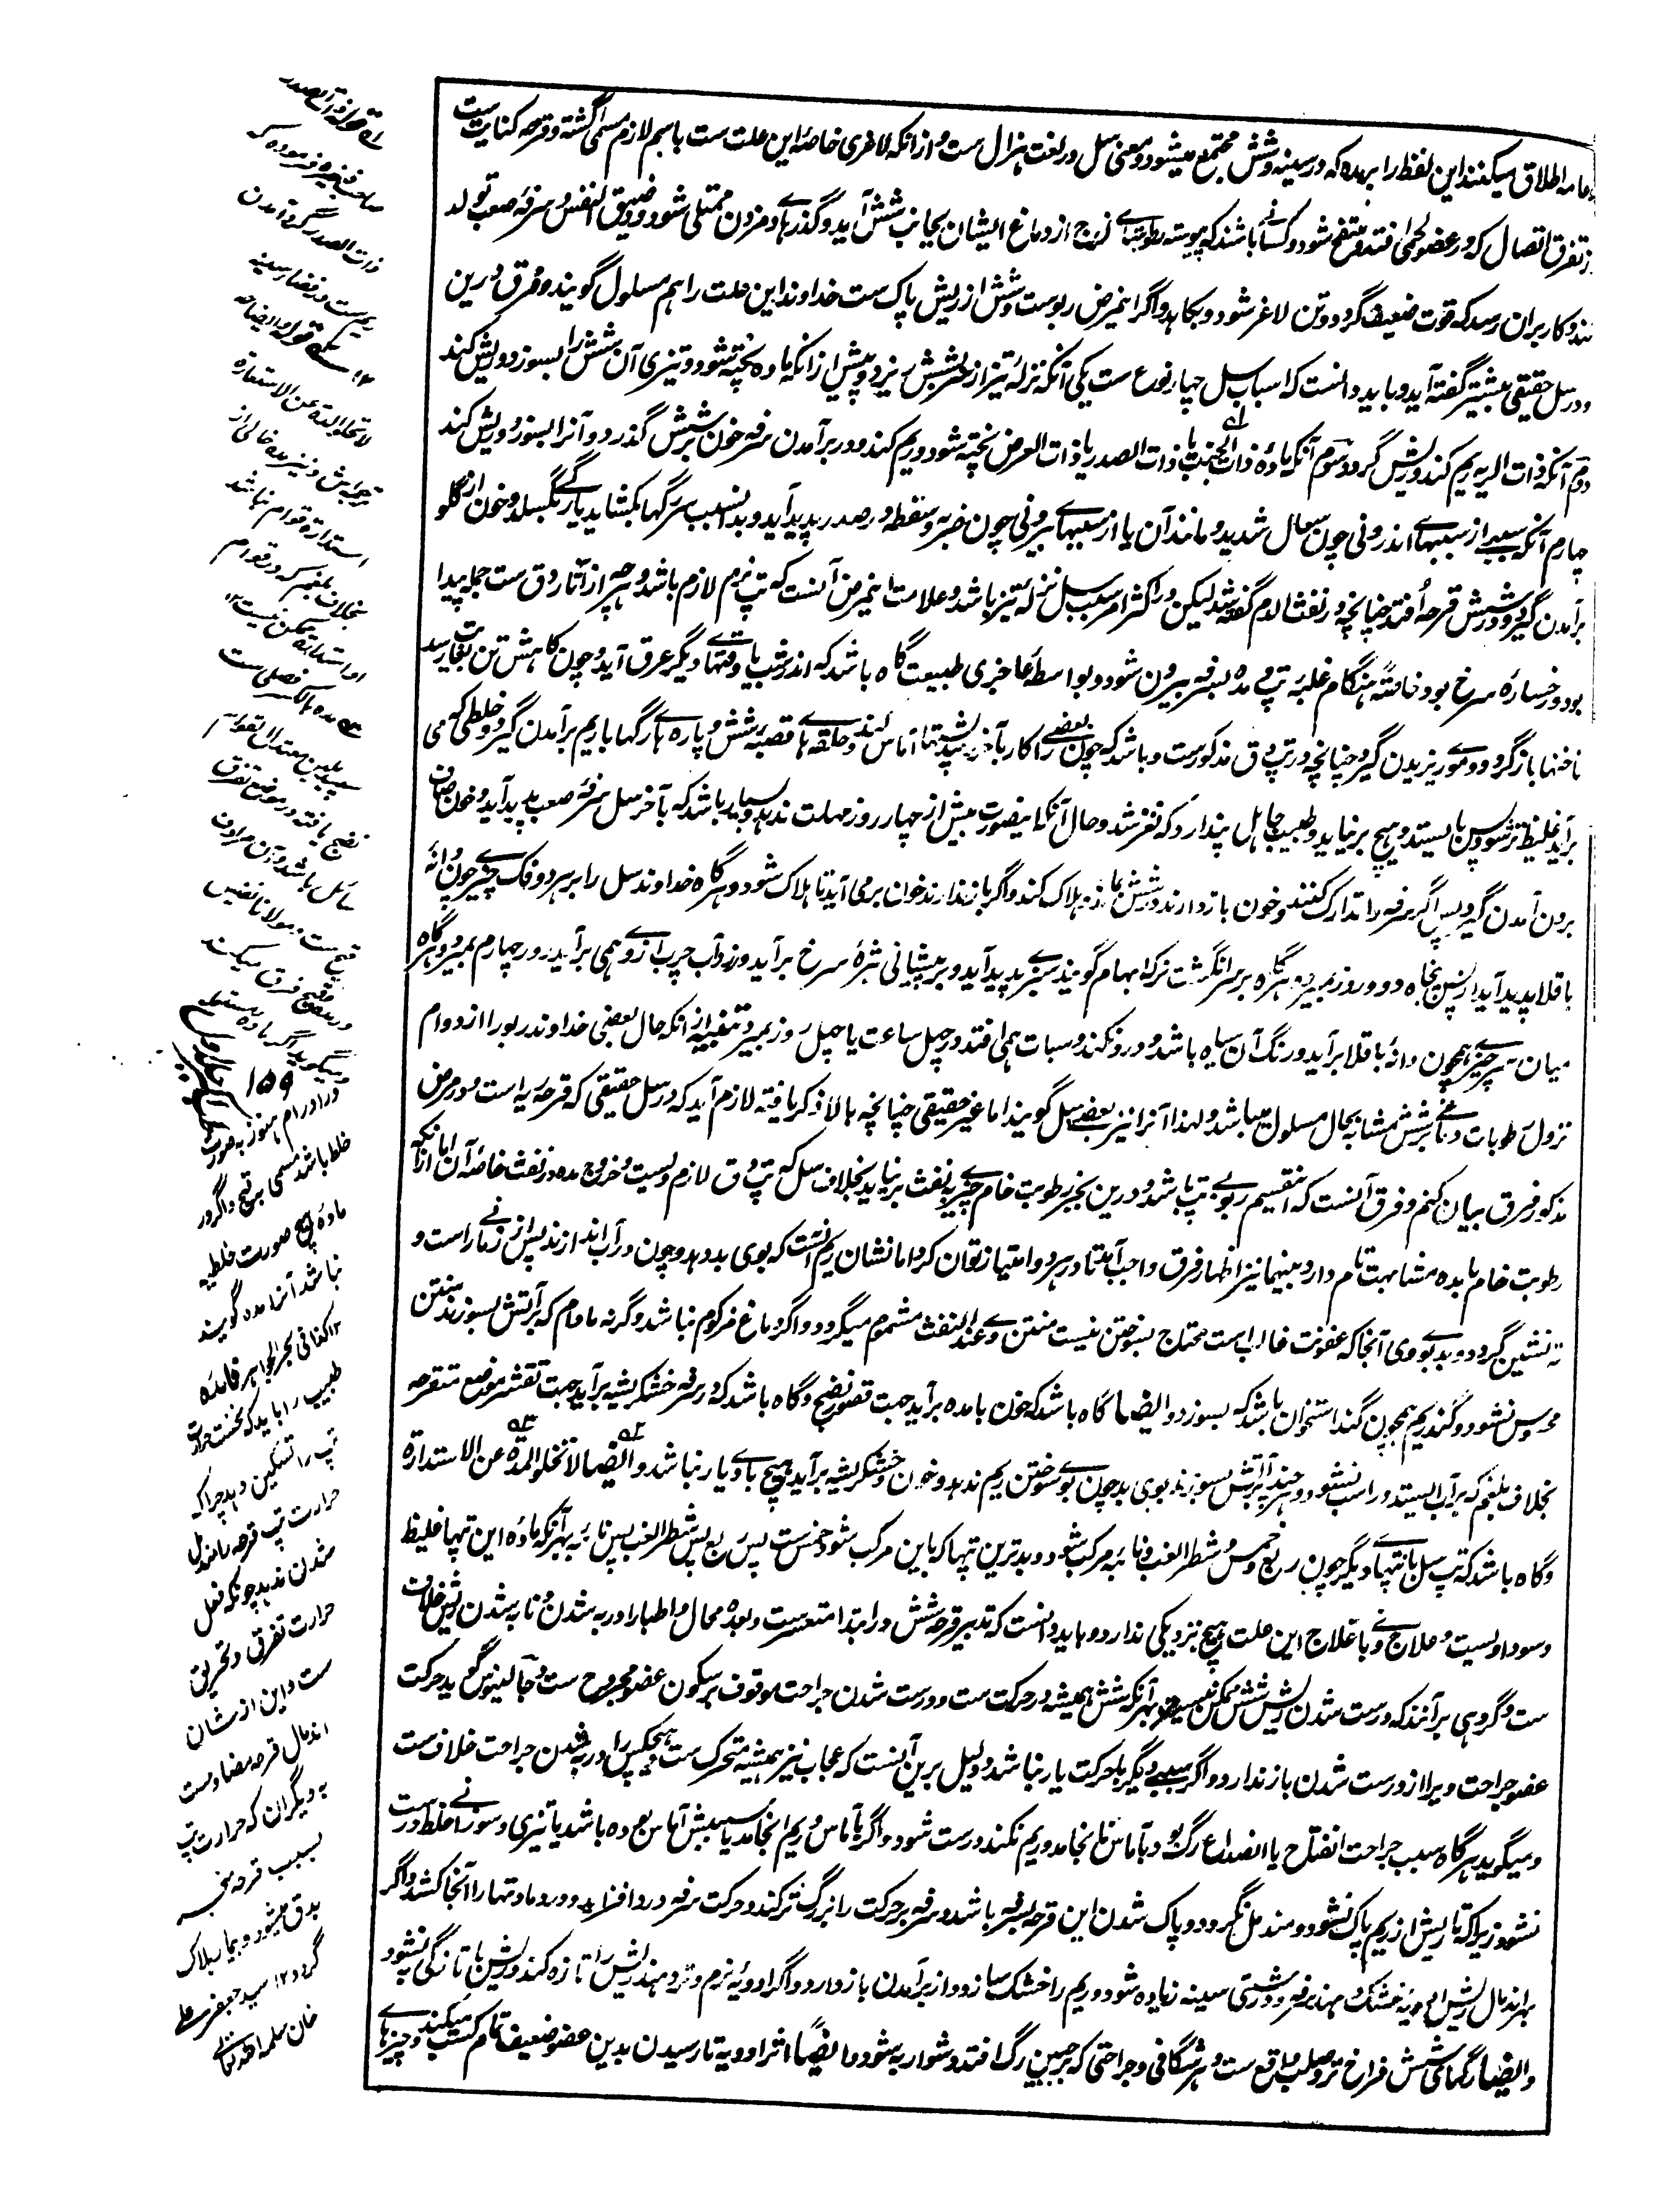 و عامه اطلاق میکنند این لفظ را بر مده که در سینه و شش مجتمع میشود و معنی سل در لغت هزال ست و از انکه لاغری خاصه این علت ست باسم لازم مسمی گشته و قرحه کنایت ست
از تفرق اتصال که در عضو لحمی افتد و متقح شود و کسانے باشند که پیوسته رطوبتہاے لزج از دماغ ایشان بجانب شش آید و گذرہاے دم زدن ممتلی شود و ضیق النفس و سرفه صعب تولد
کند و کار بران رسد که قوت ضعیف گردد و تن لاغر شود و بکاہد و اگر اینمرض ربوست و شش از ریش پاک ست خداوند این علت را ہم مسلول گویند و فرق درین
و در سل حقیقی پیشتر گفته آید و باید دانست که اسباب سل چہار نوع ست یکی آنکه نزلهٔ تیز از سر بشش ریزد و پیش از انکه ماده پخته شود و تیزی آن شش را بسوزد و ریش کند
دوم آنکه ذات الریه ریم کند و ریش گردد سوم آنکه مادهٔ ذات الجنب یا ذات الصدر یا ذات العرض پخته شود و ریم کند و در برآمدن بسرفه خون بر شش گذرد و آنرا بسوزد و ریش کند
چارم آنکه سببے از سببہاے اندرونی چون سعال شدید و مانند آن یا از سببہاے بیرونی چون ضربه و سقطه در صدر پدید آید و بدانسبب سر رگہا بکشاید یا رگے بگسلد و خون از گلو
برآمدن گیرد و در شش قرحه افتد چنانچه در نفث الدم گفته شد لیکن در اکثر امر سبب سل نزلهٔ تیز باشد و علامت اینمرض آنست که تپ نرم لازم باشد و ہر چه از آثار دق ست جمله پیدا
بود و رخساره سرخ بود خاصّة هنگام غلبهٔ تپ و مده بسرفه بیرون شود و بواسطهٔ عاجزی طبیعت گاه باشد که اندر شب یا وقتہاے دیگر عرق آید و چون کاہش تن بغایت رسد
ناخنہا باز گردد و موے ریزیدن گیرد چنانچه در تپ دق مذکور ست و باشد که چون بعضے را کار بآخر رسد پشتہا آماس کند و حلقه ہاے قصبهٔ شش و پاره ہاے رگہا با ریم برآمدن گیرد و خلطی که می
برآید غلیظ تر شود پس بایستد و ہیچ برنیاید و طبیب جاہل پندارد که نغز شد و حال آنکه اینصورت بیش از چہار روز مہلت ندہد و بسیار باشد که بآخر سل سرفهٔ صعب پدید آید و خون صاف
برون آمدن گیرد پس اگر سرفه را تدارک کنند و خون باز دارند در شش ماند ہلاک کند و اگر باز ندارند خون برمی آید تا ہلاک شود و ہرگاه خداوند سل را بر سر دو فک چیزے چون دانهٔ
باقلا پدید آید از پس پنجاه و دو روز بمیرد و ہرگاه بر سر انگشت نر که ابہام گویند سبزے پدید آید و بر پیشانی بثرهٔ سرخ برآید و زرد آب چرب از وے ہمی برآید روز چہارم بمیرد و ہرگاه
میان سر چیزے ہمچون دانهٔ باقلا برآید و رنگ آن سیاه باشد و درد نکند و سبات ہمی افتد در چہل ساعت یا چہل روز بمیرد تنبیه از انکه حال بعضی خداوند ربو را از دوام
نزول رطوبات دماغے بر شش مشابه بحال مسلول میباشد و لہذا آنرا نیز بعضے سل گویند اما غیر حقیقی چنانچه بالا ذکر یافته لازم آید که در سل حقیقی که قرحه ریه است و در مرض
مذکور فرق بیان کنم و فرق آنست که این قسیم ربو بے تپ باشد و درین بجز رطوبت خام چیزے به نفث برنیاید بخلاف سل که تپ دق لازم ویست و خروج مده در نفث خاصه آن اما از انکه
رطوبت خام با مده مشابہت تام دارد بینہما نیز اظہار فرق واجب آمد تا در ہر دو امتیاز توان کرد اما نشان ریم آنست که بوی بد دہد و چون در آب اندازند پس از زمانے راست و
ته نشین گردد و بدبوی آنجا که عفونت غالب است محتاج بسوختن نیست منتن و عند النفث مشموم میگردد و اگر دماغ مزکوم نباشد و گرنه مادام که بر آتش بسوزند منتن
محسوس نشود و گند ریم ہمچون گند استخوان باشد که بسوزد و ایضًا گاه باشد که خون با مده برآید جہت قصور نضج و گاه باشد که در سرفه خشکریشه برآید جہت تقشر موضع متقرحه
بخلاف بلغم که بر آب ایستد و راسب نشود و ہر چند بر آتش بسوزند بوی بد چون بوے سوختن ریم ندہد و خون و خشکریشه برآید ہیچ باوے یار نباشد و ایضًا لاتخلو المدة عن الاستدارة
وگاه باشد که تپ سل با تپہاے دیگر چون ربع و خمس و شطر الغب و نائبه مرکب شود و بدترین تپہا که باین مرکب شود خمس ست پس ربع پس شطر الغب پس نائبه بہر آنکه مادهٔ این تپہا غلیظ
و سوداویست و علاج وے با علاج این علت ہیچ نزدیکی ندارد و باید دانست که تدبیر قرحهٔ شش در ابتدا متعسر ست و بعده محال و اطبا را در به شدن و نابه شدن ریش خلاف
ست گروہی برآنند که درست شدن ریش شش ممکن نیست بہر آنکه شش ہمیشه در حرکت ست و درست شدن جراحت موقوف بر سکون عضو مجروح ست و جالینوس گوید حرکت
عضو جراحت ویرا از درست شدن باز ندارد و اگر سببے دیگر با حرکت یار نباشد و دلیل برین آنست که حجاب نیز ہمیشه متحرک ست و ہیچکس را در به شدن جراحت خلاف ست
و میگوید ہرگاه سبب جراحت انفتاح یا انصداع رگ بود و بآماس نانجامد و ریم نکند درست شود و اگر بآماس و ریم انجامد یا سببش آماس بوده باشد یا تیزی و سوزانے خلط درست
نشود زیرا که تا ریش از ریم پاک نشود و مندمل نگردد و پاک شدن این قرحه بسرفه باشد و سرفه بر حرکت را بزرگ تر کند و حرکت سرفه درد افزاید و درد مادتہا را آنجا کشد و اگر
براندمال ریش ادویهٔ خشک دہند سرفه و درشتی سینه زیاده شود و ریم را خشک سازد و از برآمدن باز دارد و اگر ادویهٔ نرم و تر دہند ریش را تازه کند و ریش با تازگی به نشود
و ایضًا رگہای شش فراخ تر و صلب واقع ست و ہر شگافی و جراحتی که بر چنین رگ افتد دشوار به شود و ایضًا اثر ادویه تا رسیدن بدین عضو ضعیف تام کسب میکند و چیزہاے
له قوله ذات الصدر
صاحب ذخیره فرموده که
ذات الصدر گرد آمدن
ریم ست در فضاء سینه
۱۲ سه قوله و ایضًا
لاتخلو المدة عن الاستدارة
استدارة قوام نباشد
بخلاف بلغم که در قوام
او استدارة ممکن نیست ۱۲
سه مده بالکسر فضلی ست
سپید بلین معتدل القوام
نضج یافته در موضع تفرق
سائل باشد و آن مرادف
قیح ست مولانا نفیس
در مده و قیح فرق میکند
و میگوید اگر ماده مستعمله
۱۵۹
در اورام ہنوز بصورت
خلط باشد مسمی بر قیح و اگر در
ماده ہیچ صورت خلطیه
نباشد آنرا مده گویند
۱۲ کذا فی بحر الجواہر فائده
طبیب را باید که نخست حرارت
تپ را تسکین دہد چرا که
حرارت تپ قرحه را مندمل
شدن ندہد چونکه فعل
حرارت تفرق و تحریق
ست و این از شان
اندمال قرحه مضاد ست
به دیگران که حرارت تپ
بسبب قرحه
بدق میشود و بیمار ہلاک
گردد ۱۲ سید جعفر علی
خان سلمه الله تعالے